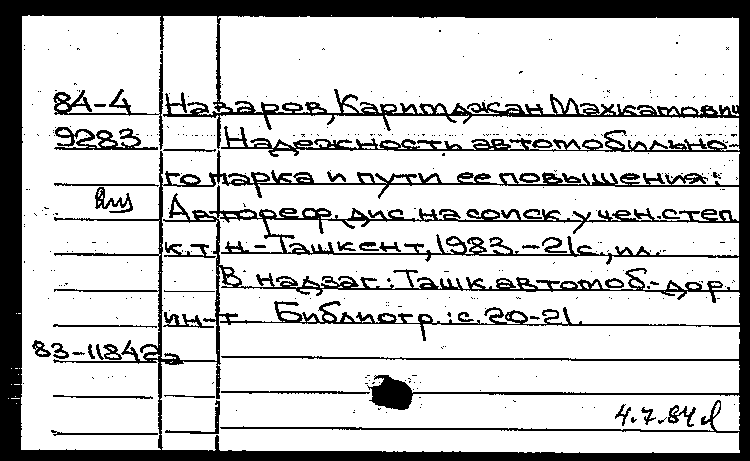 84-4 Назаров, Каримджан Махкамович
9283 Надежность автомобильно-
го парка и пути ее повышения:
Автореф. дис. на соиск. учен. степ.
к.т.н. - Ташкент, 1983. - 21с., ил.
В надзаг.: Ташк. автомоб.-дор.
ин-т Библиогр.: с. 20-21.
83-11842а
4.7.84